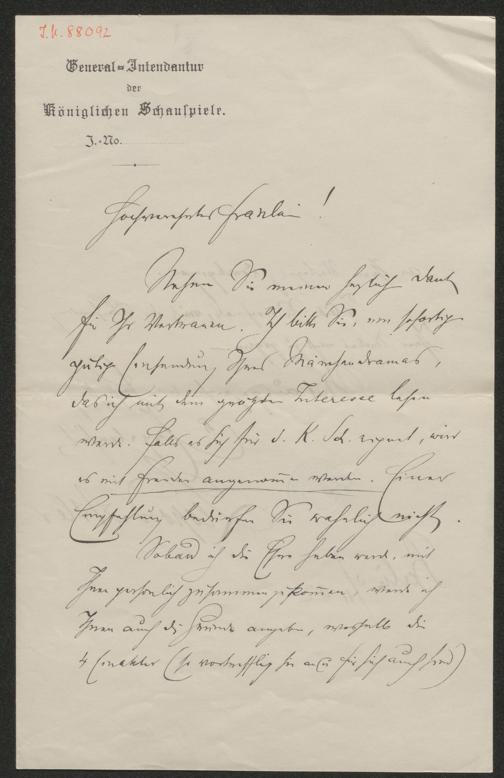 I.N. 88092
General-Intendantur
der
Königlichen Schauspiele.
J.-No.
Hochverehrtes Fräulein!
Nehmen Sie meinen herzlich Dank
für Ihr Vertrauen. Ich bitte Sie, um sofortige
gütige Einsendung Ihres Märchendramas,
das ich mit dem größten Interesse lesen
werde. Falls es sich für d. K. Sch. eignet, wird
es mit Freuden angenommen werden. Einer
Empfehlung bedürfen Sie wahrlich nicht.
Sobald ich die Ehre haben werde, mit
Ihnen persönlich zusammenzukommen, werde ich
Ihnen auch die Gründe angeben, weshalb die
4 Einakter (so vortrefflich sie an u. für sich auch sind)